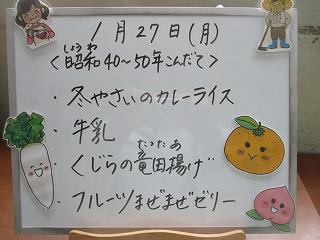 1月27日(月)
しょうわ
<昭和40~50年こんだて>
・冬やさいのカレーライス
・牛乳
たつたあ
・くじらの竜田揚げ
・フルーツまぜまぜゼリー